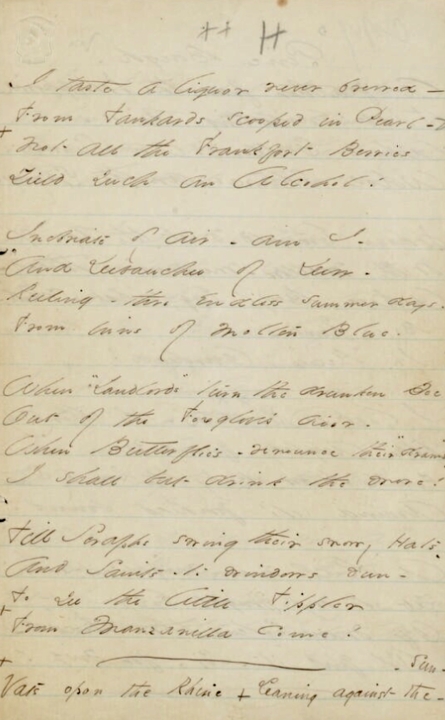 ++ H
I taste a liquor never brewed –
From Tankards scooped in Pearl –
+ Not all the Frankfort Berries
Yield such an Alcohol!
Inebriate of air – am I –
And Debauchee of Dew –
Reeling – thro endless summer days –
From inns of Molten Blue –
When "Landlords" turn the drunken Bee
Out of the Foxglove's door –
When Butterflies – renounce their "drams"
I shall but drink the more!
Till Seraphs swing their snowy Hats –
And Saints – to windows run –
+ To see the little Tippler
+ From Manzanilla come!
+ – Sun –
Vats upon the Rhine + Leaning against the –